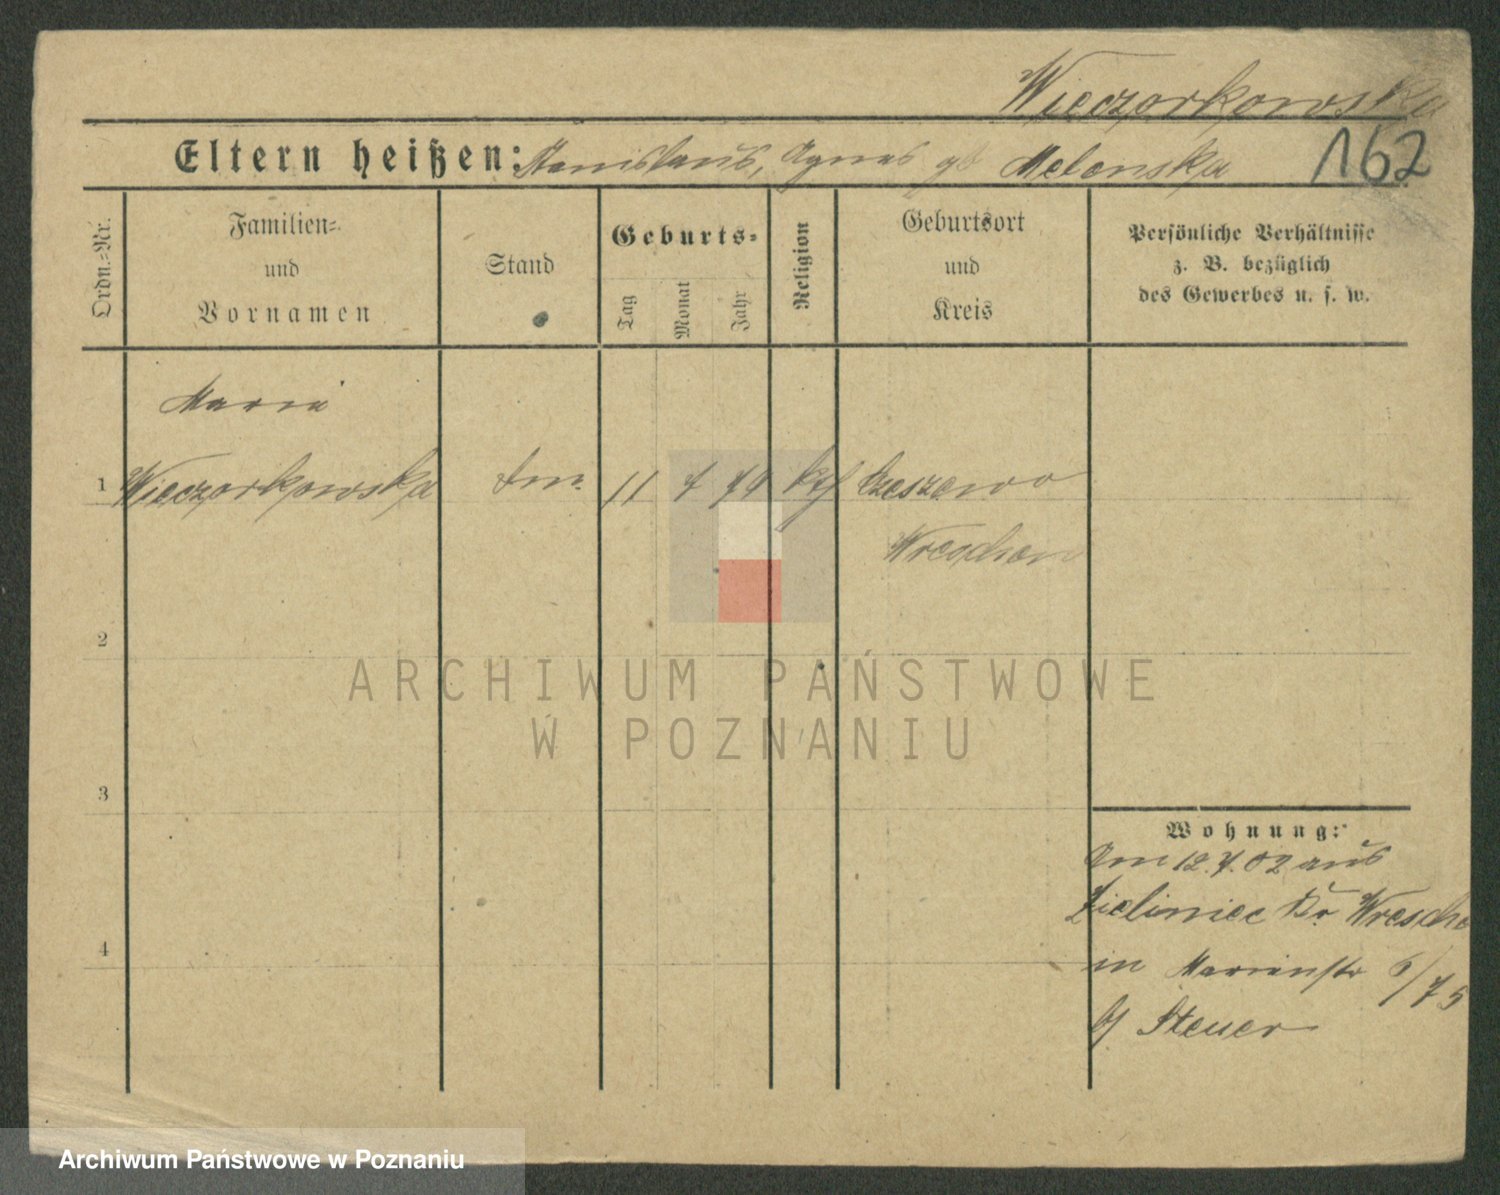 Wieczorkowska
Eltern heißen: Stanislaus, Agnes gb Melonska
162
Ordn.-Nr.
Familien-
und
Vornamen
Stand
Geburts-
Tag
Monat
Jahr
Religion
Geburtsort
und
Kreis
Persönliche Verhältnisse
z. B. bezüglich
des Gewerbes u. s. w.
Maria
1 Wieczorkowska 11 7 kth Czeszewo
Wreschen
2
3
4
Wohnung:
Am 12.7.02 aus
Zieliniec Kr Wresche
in Marienstr 6/75
b/ Steuer
ARCHIWUM PAŃSTWOWE
W POZNANIU
Archiwum Państwowe w Poznaniu